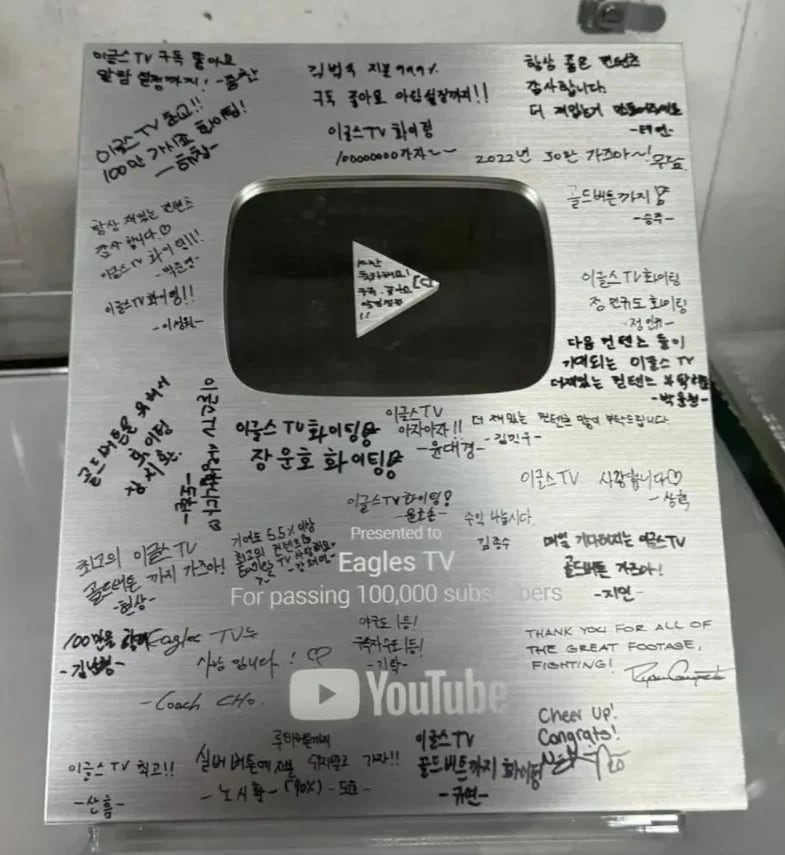 이글스TV 구독 좋아요
알람 설정까지! -종찬
이글스TV 최고!!
100만 가시죠 화이팅!
김범수 지분 99.9%
구독 좋아요 알림설정까지!!
이글스TV 화이팅
10000000가자~~
항상 좋은 컨텐츠
감사합니다.
더 재밌는거
-태연-
2022년 30만 가즈아~!
골드버튼까지
-승주-
항상 재밌는 컨텐츠
감사합니다.♡
이글스TV 화이팅!!!
이글스TV 화이팅!!
-이성원-
이글스TV화이팅
정민규도 화이팅
-정민규-
다음 컨텐츠 들이
기대되는 이글스 TV
더재밌는 컨텐츠
-박윤철-
골드버튼을 위하여
화이팅
장시환
이글스TV 사랑합니다♡
이글스 TV 화이팅
장운호 화이팅
이글스TV
아자아자!!
-윤대경-
더 재밌는 컨텐츠 많이 부탁드립니다.
-김민우-
이글스TV 사랑합니다♡
-상혁
이글스TV화이팅
-윤호솔-
수익 나눕시다.
김종수
매일 기다려지는 이글스TV
골드버튼 가즈아!
-지연-
최고의 이글스TV
골드버튼 까지 가즈아!
-현상-
기여도 5.5% 이상
최고의 컨텐츠
Presented to
Eagles TV
For passing 100,000 subscribers
100만을 향해
-김남형-
Eagles TV는
사랑 입니다! ♡
-Coach CHO.
야구도 1등!
구독자수도 1등!
-기탁-
THANK YOU FOR ALL OF
THE GREAT FOOTAGE,
FIGHTING!
YouTube
Cheer Up!
Congrats!
이글스TV 최고!!
-산흠-
루비버튼까지
실버버튼에 지분
가자!!
-노시환- (90%) -도효-
이글스TV
골드버튼까지 화이팅
-규연-